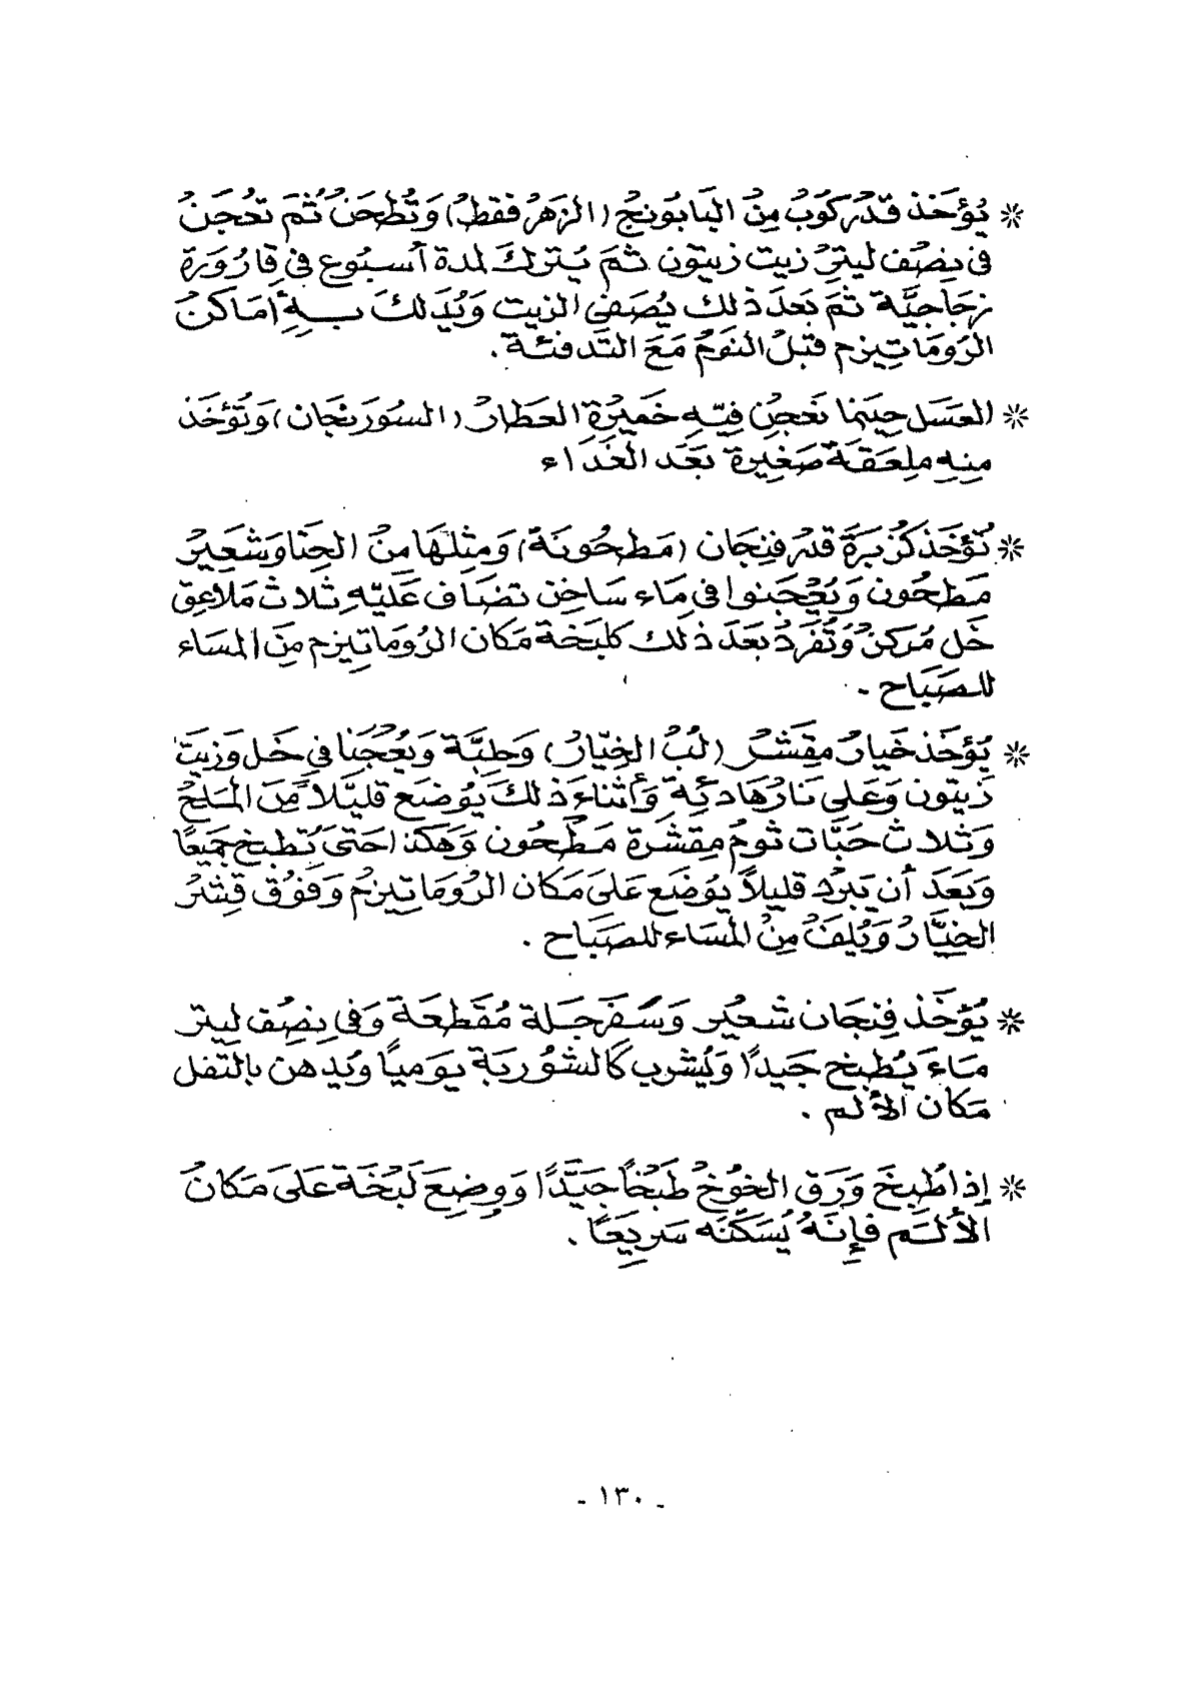 * يُؤخَذ قدْر كَوُبْ مِنْ البَابوَنِجْ (الزهَرْ فقطْ) وَتُطْحَنْ ثُمَ تعْجَنْ
في نِصْف ليترِْ زيت زيتون ثمَ يُتركَ لمدة أسبُوع في قِارُورَة
زجَاجيَّة ثمَ بَعدَ ذلك يُصَفىِ الزيت وَيُدَلكَ بـهِ أمَاكنْ
الرَومَاتِيزم قبْلْ النوَمْ مَعَ التَدفئة .
* العسَل حِينما نعَجِن فيّهِ خَميرْة العطارْ (السُورَنجَان) وَتُؤخَذ
مِنهِ ملِعَقَة صَغِيرة بَعَد الغَدَاء
* تُؤخَذ كزُبرَةَ قدْر فنِجَان (مَطحُونَة) وَمِثِلهَا مِنْ الحِنَا وَشعَيِرْ
مَطحُون وَيُعْجَنوا في مَاء سَاخِن تضَاف عَليّهِ ثلاث مَلاعِق
خَل مُرَكزْ وَتُفرَدْ بَعَدَ ذلك كلَبخَة مَكان الرُومَاتِيزم مِنَ المسَاء
للصَبَاح .
* يُؤخَذ خَيارْ مقِشَرْ (لُبْ الخِيّارْ) وَطِبَّة وَيُعْجُنا في خَل وَزيَت
زَيتون وَعَلى نَارْ هَادئِة وَأثناءَ ذلكَ يوُضَع قليّلاً مّنَ المَلحْ
وَثلاث حَبَّات ثومُ مِقشَرة مَطحُون وَهَكذا حَتىَ تُطبخ جَميعًا
وَبَعَدَ أن يَبرُد قليلاً يوُضَع عَلىَ مَكان الرُومَاتِيزمْ وَفَوْق قِشرْ
الخيَّارْ وَيُلفَ مِنْ المسَاء للصَبَاح .
* يُؤخَذ فِنجَان شعيَر وَسَفَرجَلة مُقَطعَة وَفى نِصْف ليِتر
مَاءَ يُطبخ جَيدًا وَيُشرب كَالشوُربَة يوَمياً ويُدهن بالتفل
مَكان الألم .
* إذا طُبِخَ وَرَق الخوُخْ طَبْخاً جَيَّدًا وَوضِعَ لَبْخَة عَلىَ مَكانْ
الألَم فإِنَهُ يُسَكّنَه سَرِيعًا .
- ١٣٠ -